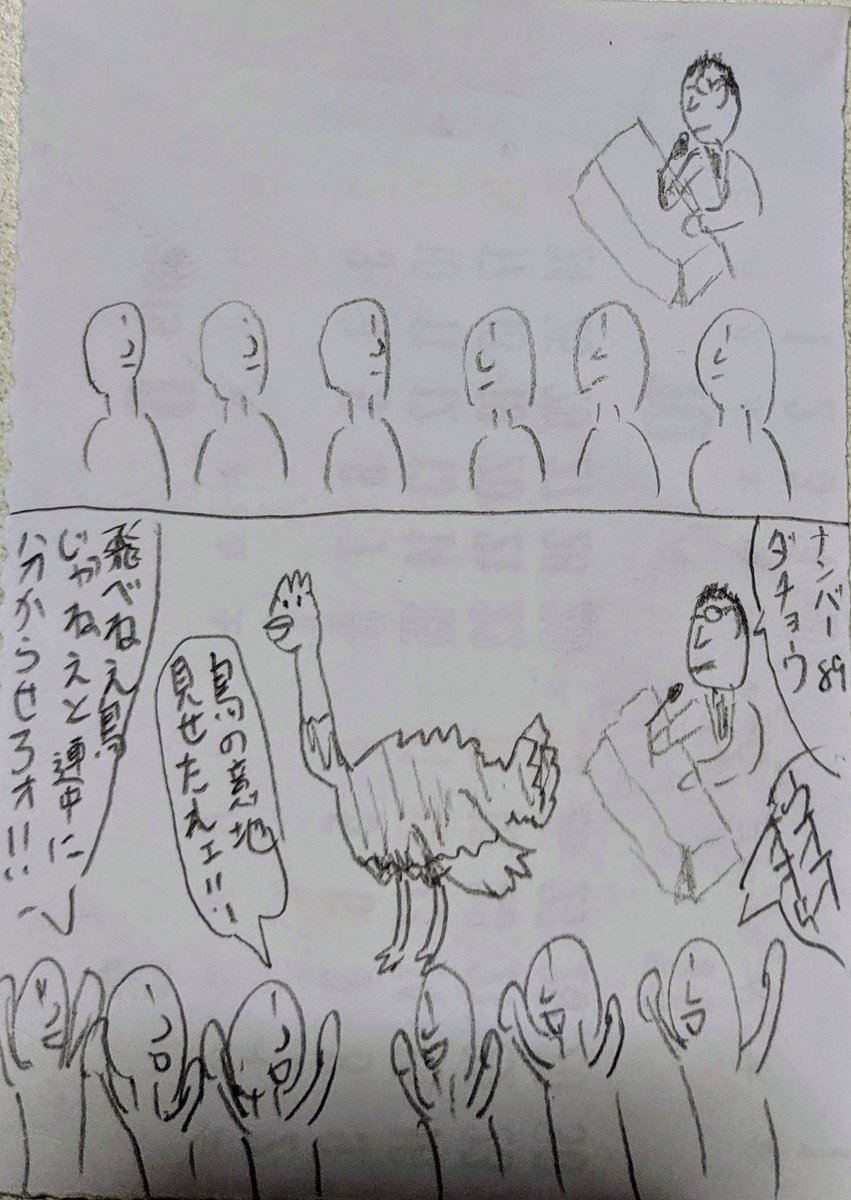 ナンバー89
ダチョウ
ウオオオオ
鳥の意地
見せたれェ!!
飛べねえ鳥
じゃねえと連中に
分からせろォ!!